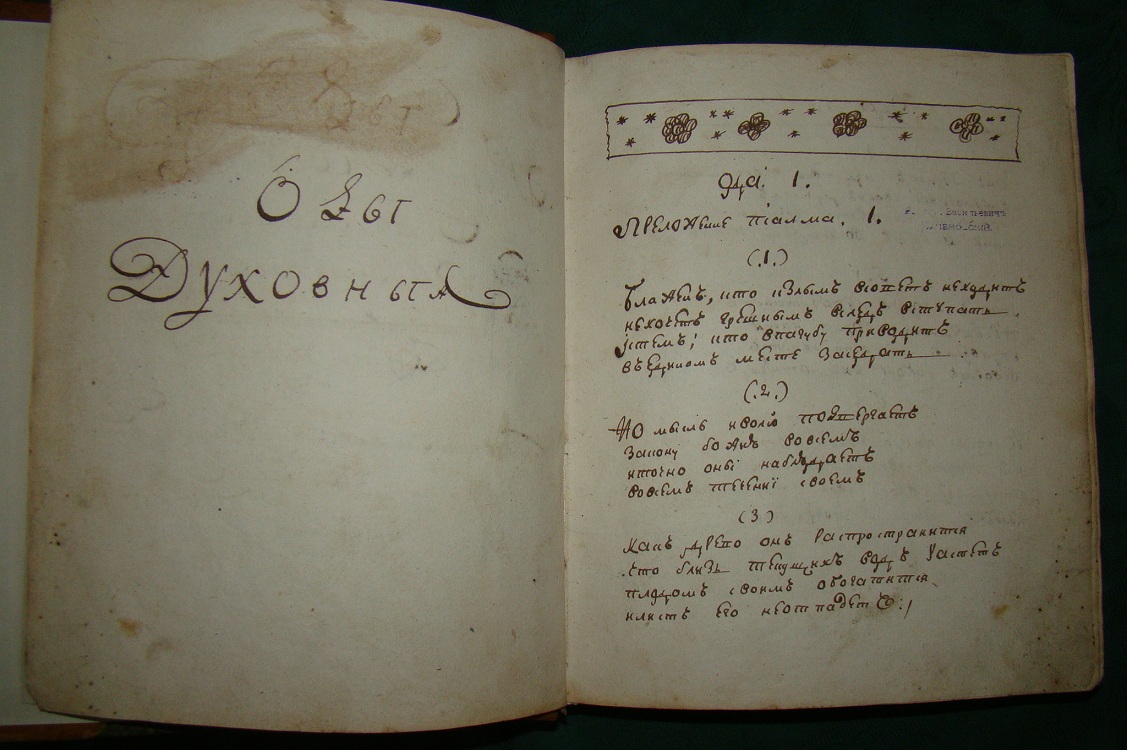 Оды
Духовныя
Ода 1.
Преложение псалма. 1.
(.1.)
Блаженъ, кто къ злымъ въ советъ неходитъ
нехочетъ грешнымъ вследъ вступать
и стемъ, кто впагубу приводитъ
въ единомъ месте заседать
(.2.)
Но мысль и волю подвергаетъ
Закону божию во всемъ
и точно оный наблюдаетъ
вовсемъ течении своемъ
(3)
Какъ древо онъ распространится
что близь текущихъ водъ растетъ
плодомъ своимъ обогатится
и листъ его неотпадетъ